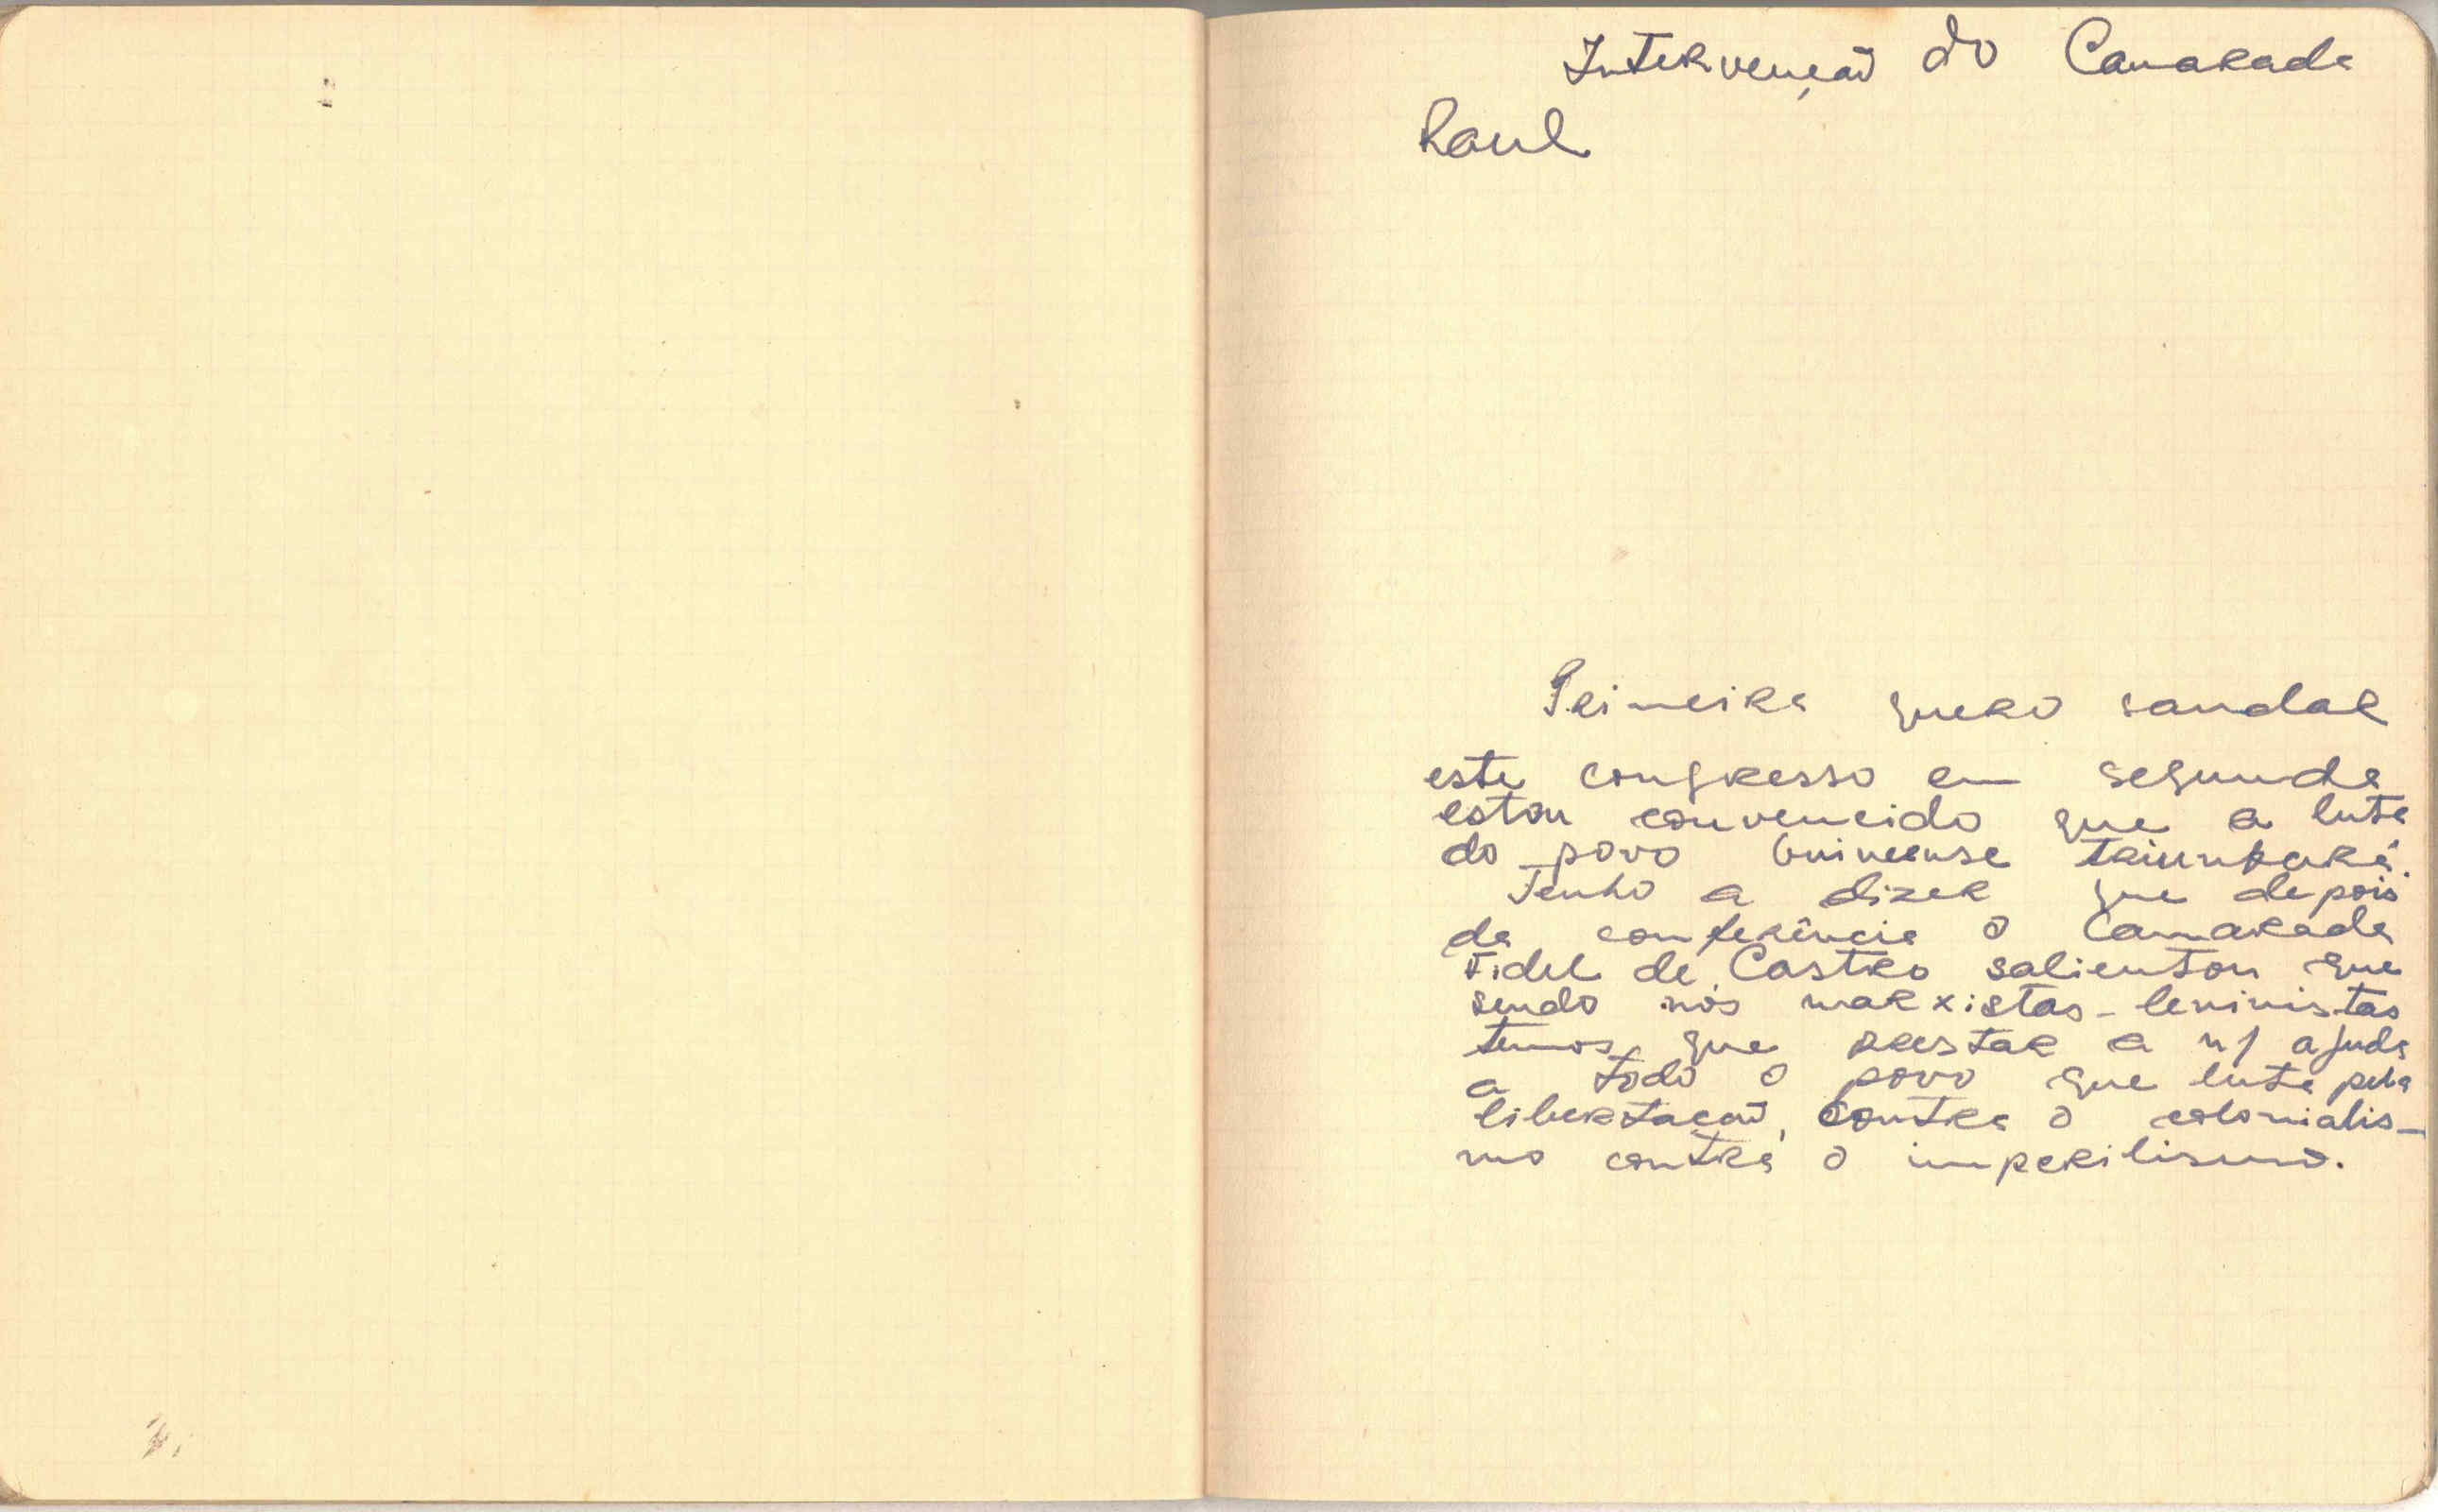 Intervenção do Camarada
Raul
Primeira quero saudar
este congresso em segunda
estou convencido que a luta
do povo Guineense triunfará.
Tenho a dizer que depois
da conferência o Camarada
Fidel de Castro salientou que
sendo nós marxistas-leninistas
temos que prestar a n/ ajuda
a todo o povo que luta pela
libertação, contra o colonialis-
mo contra o imperilismo.